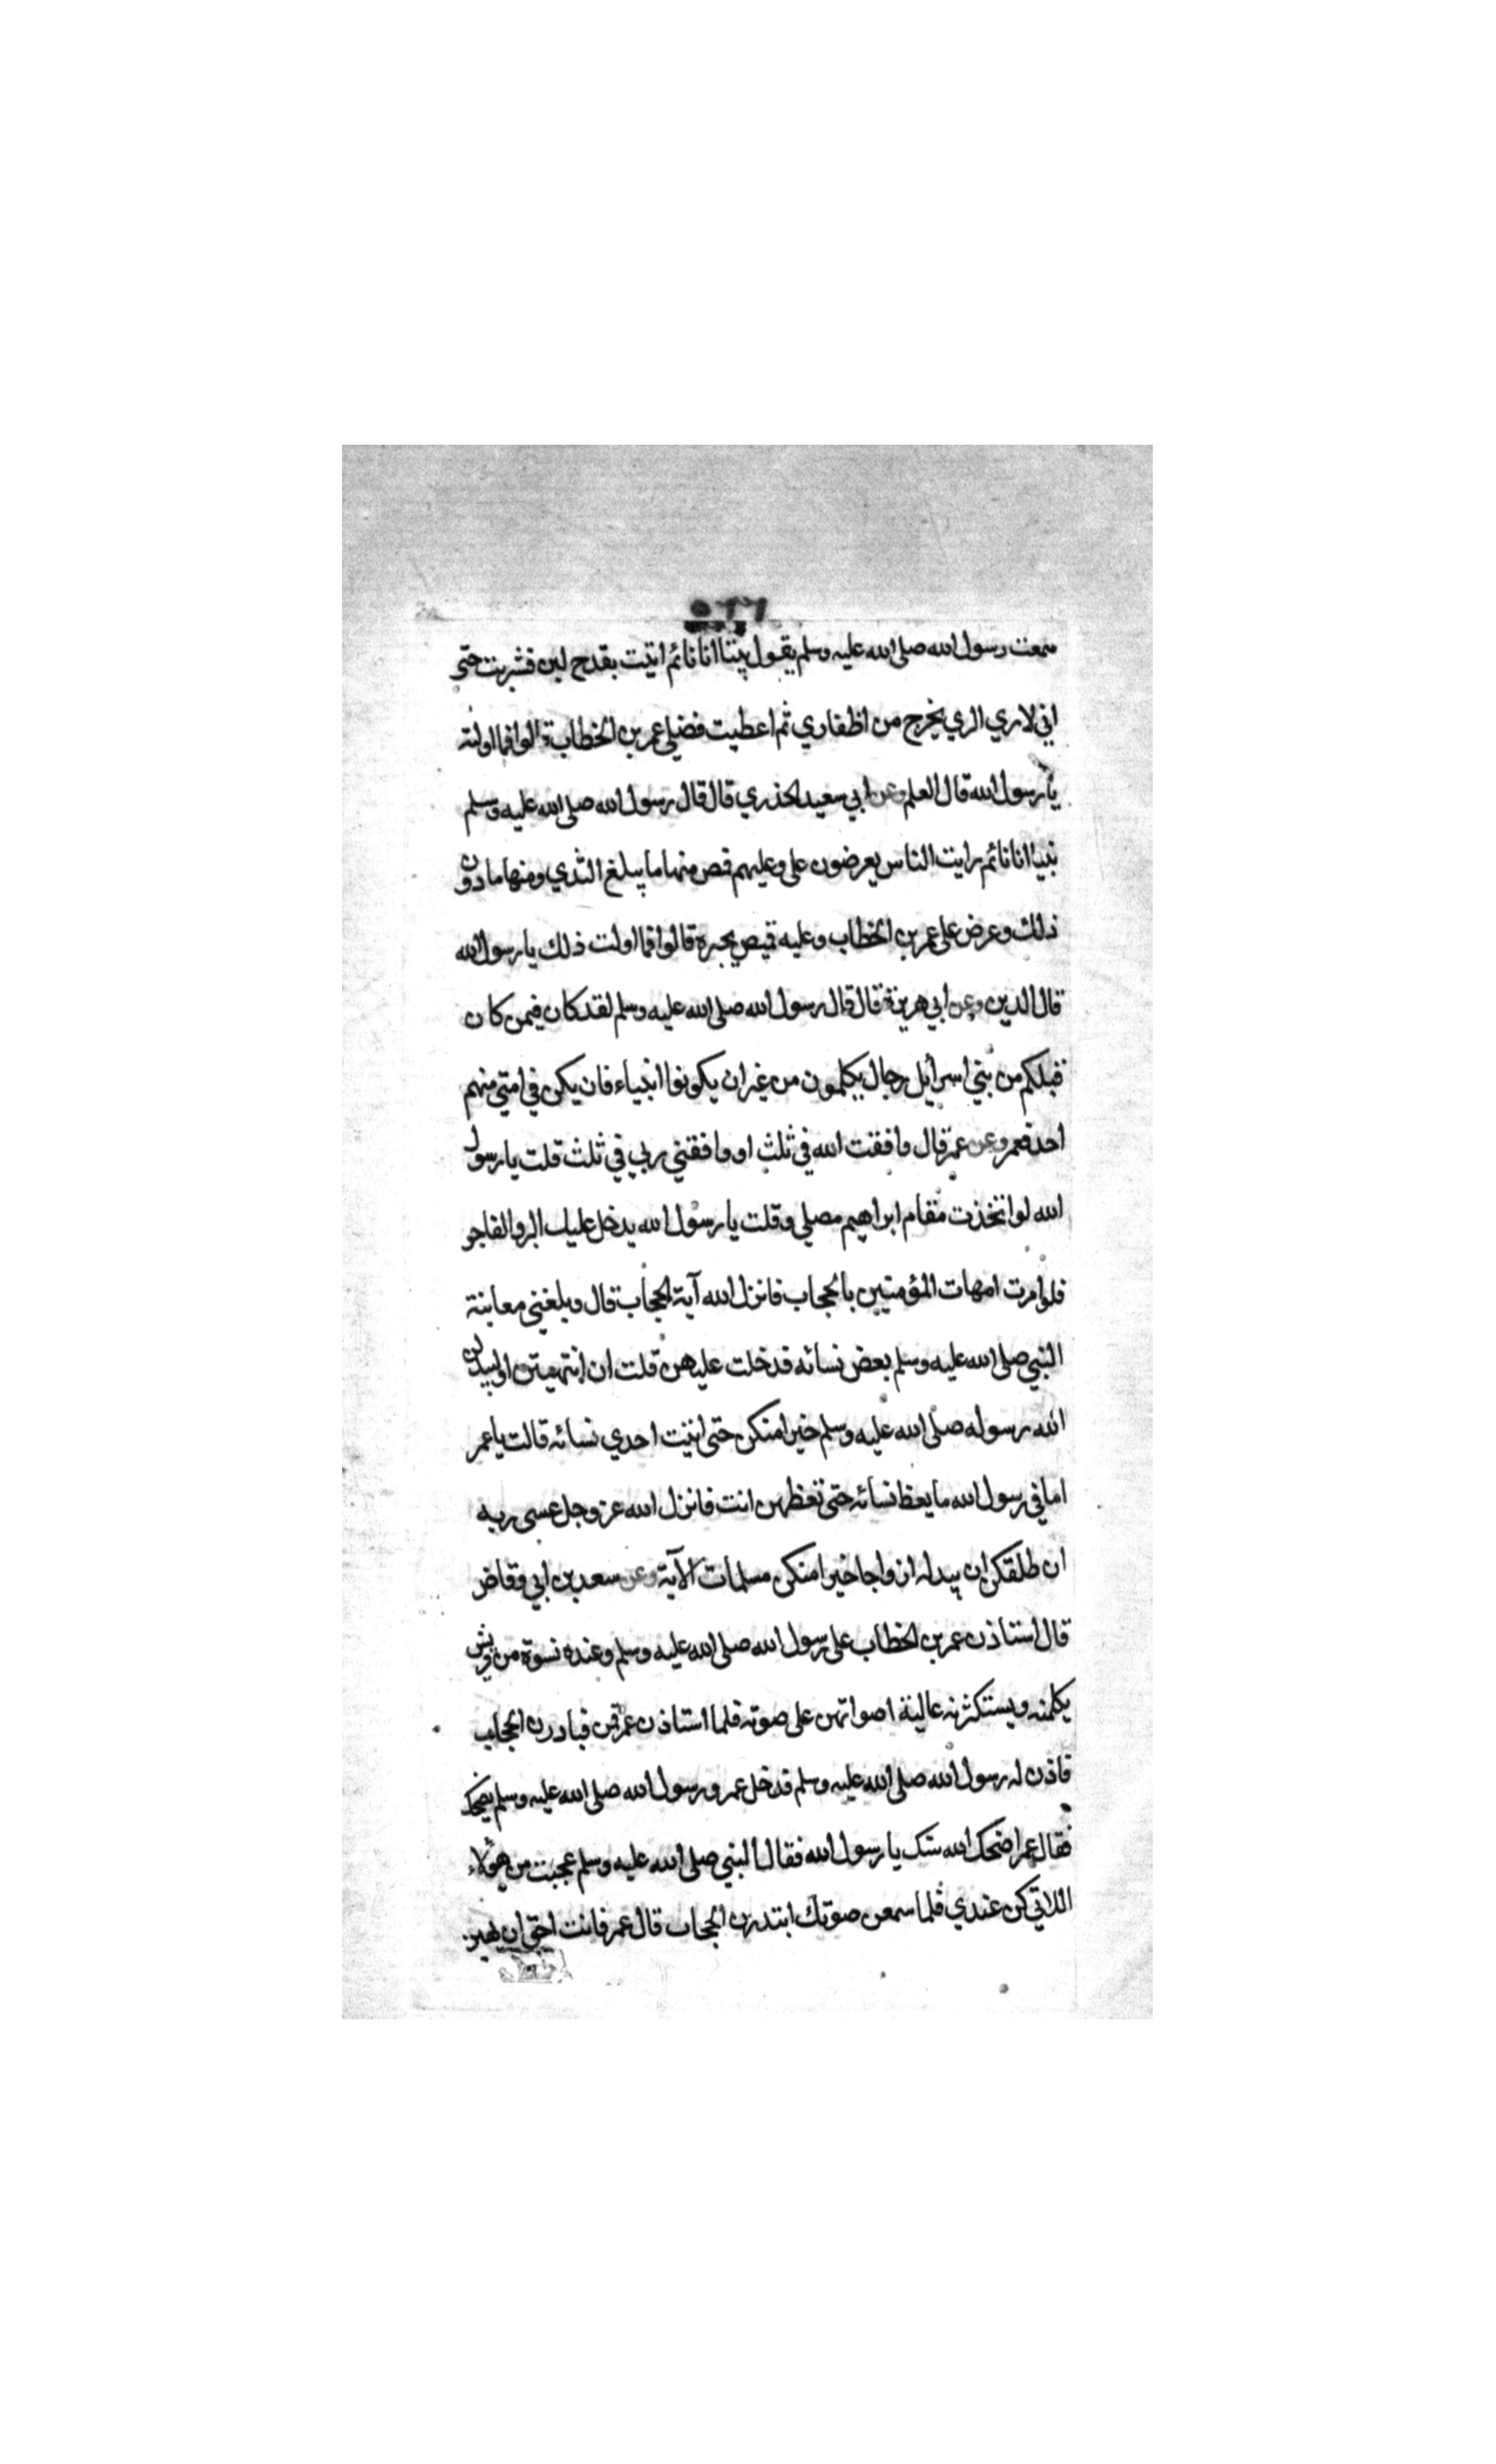 ٥٢٦
سمعت رسول الله صلى الله عليه وسلم يقول بينا انا نائم اتيت بقدح لبن فشربت حتى
اني لاري الري يخرج من اظفاري ثم اعطيت فضلي عمر بن الخطاب قالوا فما اولته
يا رسول الله قال العلم وعن ابي سعيد الخذري قال قال رسول الله صلى الله عليه وسلم
بينا انا نائم رايت الناس يعرضون علي وعليهم قمص منها ما يبلغ الثدي ومنها ما دون
ذلك وعرض علي عمر بن الخطاب وعليه قميص يجره قالوا فما اولت ذلك يا رسول الله
قال الدين وعن ابي هريرة قال قال رسول الله صلى الله عليه وسلم لقد كان فيمن كان
قبلكم من بني اسرائيل رجال يكلمون من غير ان يكونوا انبياء فان يكن في امتي منهم
احد فعمر وعن عمر قال وافقت الله في ثلث او وافقني ربي في ثلث قلت يا رسول
الله لو اتخذت مقام ابراهيم مصلي وقلت يا رسول الله يدخل عليك البر والفاجر
فلو امرت امهات المؤمنين بالحجاب فانزل الله آية الحجاب قال وبلغني معاتبة
النبي صلى الله عليه وسلم بعض نسائه فدخلت عليهن قلت ان انتهيتن او ليبدلن
الله رسوله صلى الله عليه وسلم خيرا منكن حتى اتيت احدي نسائه قالت يا عمر
اما في رسول الله ما يعظ نسائه حتى تعظهن انت فانزل الله عز وجل عسى ربه
ان طلقكن ان يبدله ازواجا خيرا منكن مسلمات الآية وعن سعد بن ابي وقاص
قال استاذن عمر بن الخطاب على رسول الله صلى الله عليه وسلم وعنده نسوة من قريش
يكلمنه ويستكثرنه عالية اصواتهن على صوته فلما استاذن عمر قمن فبادرن الحجاب
فاذن له رسول الله صلى الله عليه وسلم فدخل عمر ورسول الله صلى الله عليه وسلم يضحك
فقال عمر اضحك الله سنك يا رسول الله فقال النبي صلى الله عليه وسلم عجبت من هؤلاء
اللاتي كن عندي فلما سمعن صوتك ابتدرن الحجاب قال عمر فانت احق ان يهبن